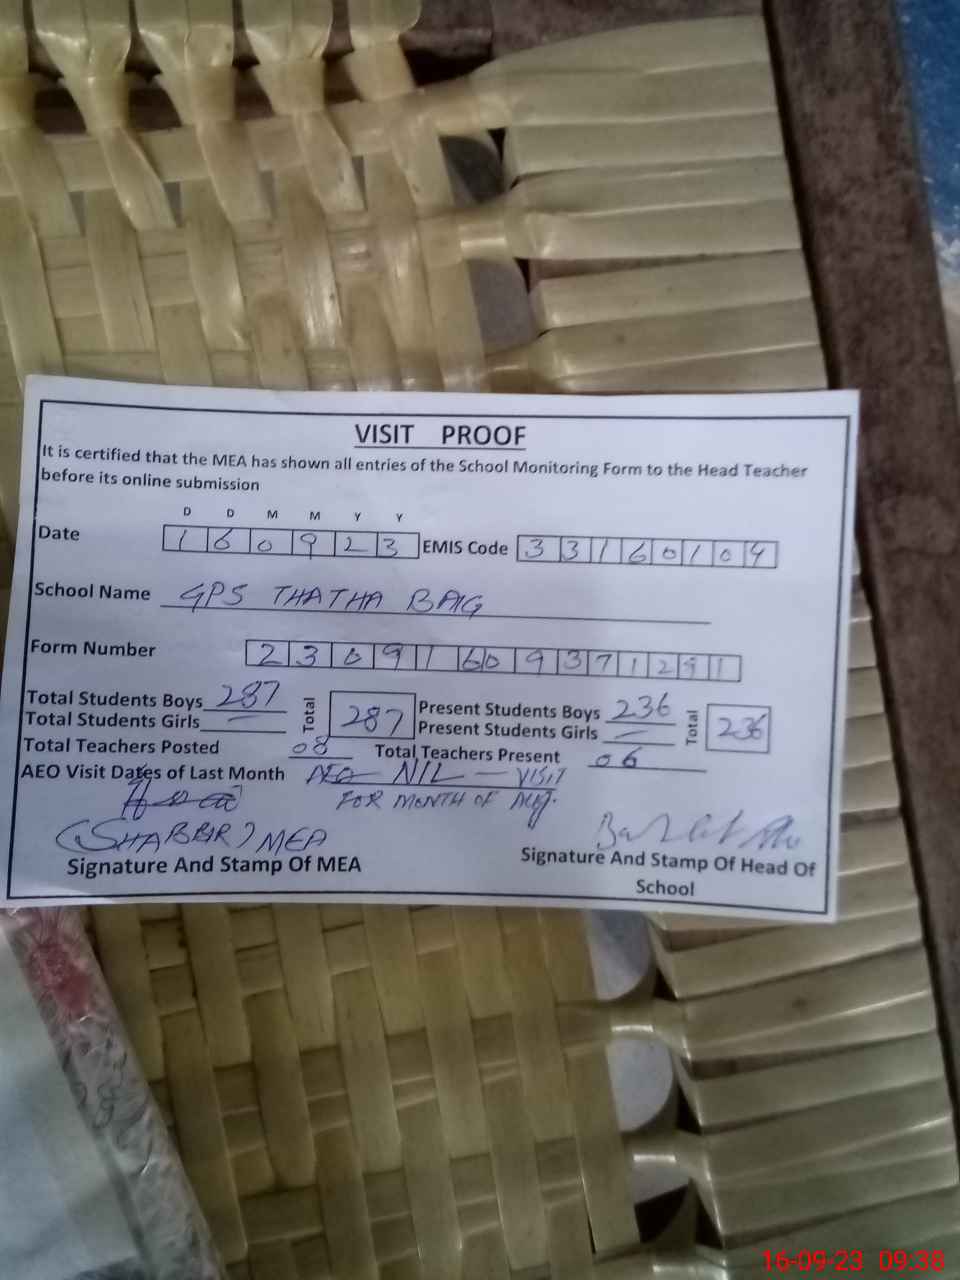 VISIT PROOF
It is certified that the MEA has shown all entries of the School Monitoring Form to the Head Teacher
before its online submission
D D M M Y Y
Date 160923 EMIS Code 33160104
School Name GPS THATHA BAIG
Form Number 23091609371291
Total Students Boys 287 Total 287 Present Students Boys 236 Total 236
Total Students Girls — Present Students Girls —
Total Teachers Posted 08 Total Teachers Present 06
AEO Visit Dates of Last Month AEO — NIL — VISIT
FOR MONTH OF AUG.
(SHABBIR) MEA
Signature And Stamp Of MEA
Signature And Stamp Of Head Of
School
16-09-23 09:38